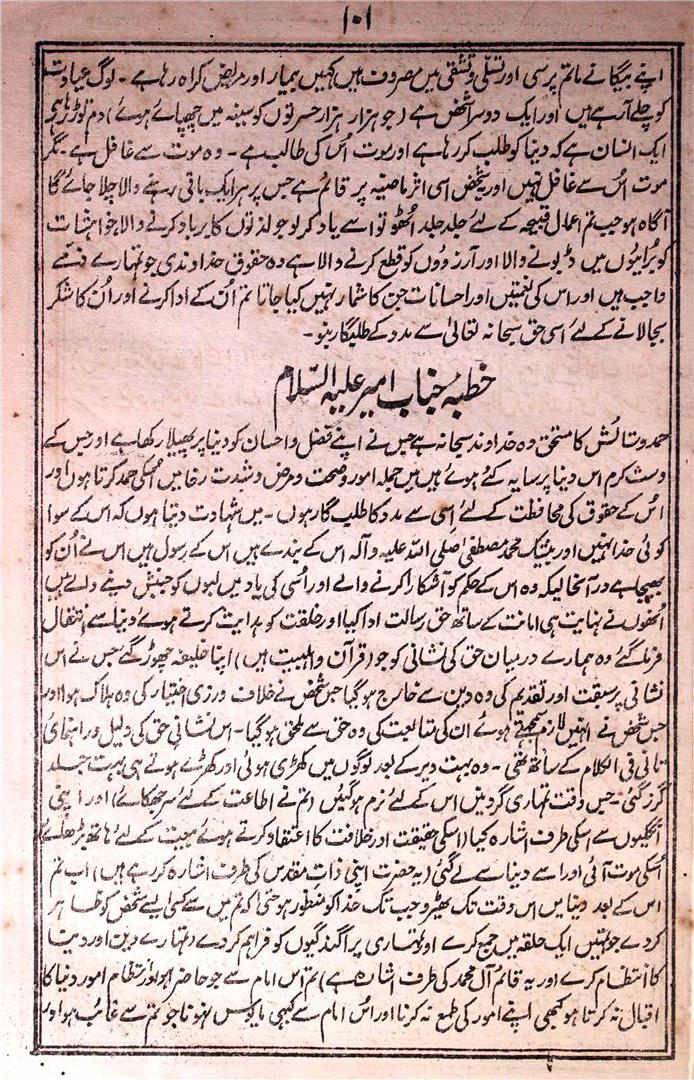 ۱۰۱
اپنے بیگانے ماتم پرسی اور تسلی و تشفی میں مصروف ہیں کہیں بیمار اور مریض کراہ رہا ہے ۔ لوگ عیادت
کو چلے آرہے ہیں اور ایک دوسرا شخص ہے (جو ہزار ہزار حسرتوں کو سینہ میں چھپائے ہوئے) دم توڑ رہا ہی
ایک انسان ہے کہ دنیا کو طلب کر رہا ہے اور موت اس کی طالب ہے ۔ وہ موت سے غافل ہے ۔ مگر
موت اُس سے غافل نہیں اور یہ شخص اسی اثر ماضیہ پر قائم ہے جس پر ہر ایک باقی رہنے والا چلا جائے گا
آگاہ ہو جب تم اعمال قبیحہ کے لئے جلد جلد اُٹھو تو اسے یاد کر لو جو لذتوں کا برباد کرنے والا، خواہشات
کو برائیوں میں ڈبونے والا اور آرزووں کو قطع کرنے والا ہے وہ حقوق خداوندی جو تمہارے ذمے
واجب ہیں اور اس کی نعمتیں اور احسانات جن کا شمار نہیں کیا جاتا تم اُن کے ادا کرنے اور اُن کا شکر
بجالانے کے لئے اسی حق سبحانہ تعالیٰ سے مدد کے طلبگار بنو ۔
خطبہ جناب امیر علیہ السلام
حمد و ستائش کا مستحق وہ خداوند سبحانہ ہے جس نے اپنے فضل و احسان کو دنیا پر پھیلا رکھا ہے اور جس کے
دست کرم اس دنیا پر سایہ کئے ہوئے ہیں میں جملہ امور و صحت و مرض و شدت رخا میں اسکی حمد کرتا ہوں اور
اس کے حقوق کی محافظت کے لئے اسی سے مدد کا طلب گار ہوں ۔ میں شہادت دیتا ہوں کہ اس کے سوا
کوئی خدا نہیں اور بیشک محمد مصطفیٰ صلی اللہ علیہ و آلہ اس کے بندے ہیں اس کے رسول ہیں اس نے اُن کو
بھیجا ہے در آنحالیکہ وہ اس کے حکم کو آشکارا کرنے والے اور اسی کی یاد میں لبوں کو جنبش دینے والے ہیں
اُنھوں نے نہایت ہی امانت کے ساتھ حق رسالت ادا کیا اور خلقت کو ہدایت کرتے ہوئے دنیا سے انتقال
فرما گئے وہ ہمارے درمیان حق کی نشانی کو جو (قرآن و اہلبیت ہیں) اپنا خلیفہ چھوڑ گئے جس نے اس
نشانی پر سبقت اور تقدیم کی وہ دین سے خارج ہو گیا جس شخص نے خلاف ورزی اختیار کی وہ ہلاک ہوا اور
جس شخص نے انہیں لازم سمجھتے ہوئے ان کی متابعت کی وہ حق سے ملحق ہو گیا ۔ اس نشانی حق کی دلیل و راہنمائی
تانی فی الکلام کے ساتھ تھی ۔ وہ بہت دیر کے بعد لوگوں میں کھڑی ہوئی اور کھڑے ہوتے ہی بہت جلد
گزر گئی ۔ جس وقت تمہاری گردنیں اس کے لئے نرم ہوگئیں (تم نے اطاعت کے لئے سر جھکائے) اور اپنی
انگلیوں سے اسکی طرف اشارہ کیا (اسکی حقیقت اور خلافت کا اعتقاد کرتے ہوئے بیعت کے لئے ہاتھ بڑھائے)
اسکی موت آئی اور اسے دنیا سے لے گئی (یہ حضرت اپنی ذات مقدس کی طرف اشارہ کر رہے ہیں) اب تم
اس کے بعد دنیا میں اس وقت تک ٹھیرو جب تک خدا کو منظور ہو حتیٰ کہ تم میں سے کسی ایسے شخص کو ظاہر
کر دے جو تمہیں ایک حلقہ میں جمع کرے اور تمہاری پراگندگیوں کو فراہم کر دے (تمہارے دین اور دنیا
کا انتظام کرے اور یہ قائم آل محمد کی طرف اشارہ ہے) تم اس امام سے جو حاضر ہو اور انتظام امور دنیا کا
اقبال نہ کرتا ہو کبھی اپنے امور کی طمع نہ کرنا اور اس امام سے کبھی مایوس نہونا جو تم سے غائب ہو اور